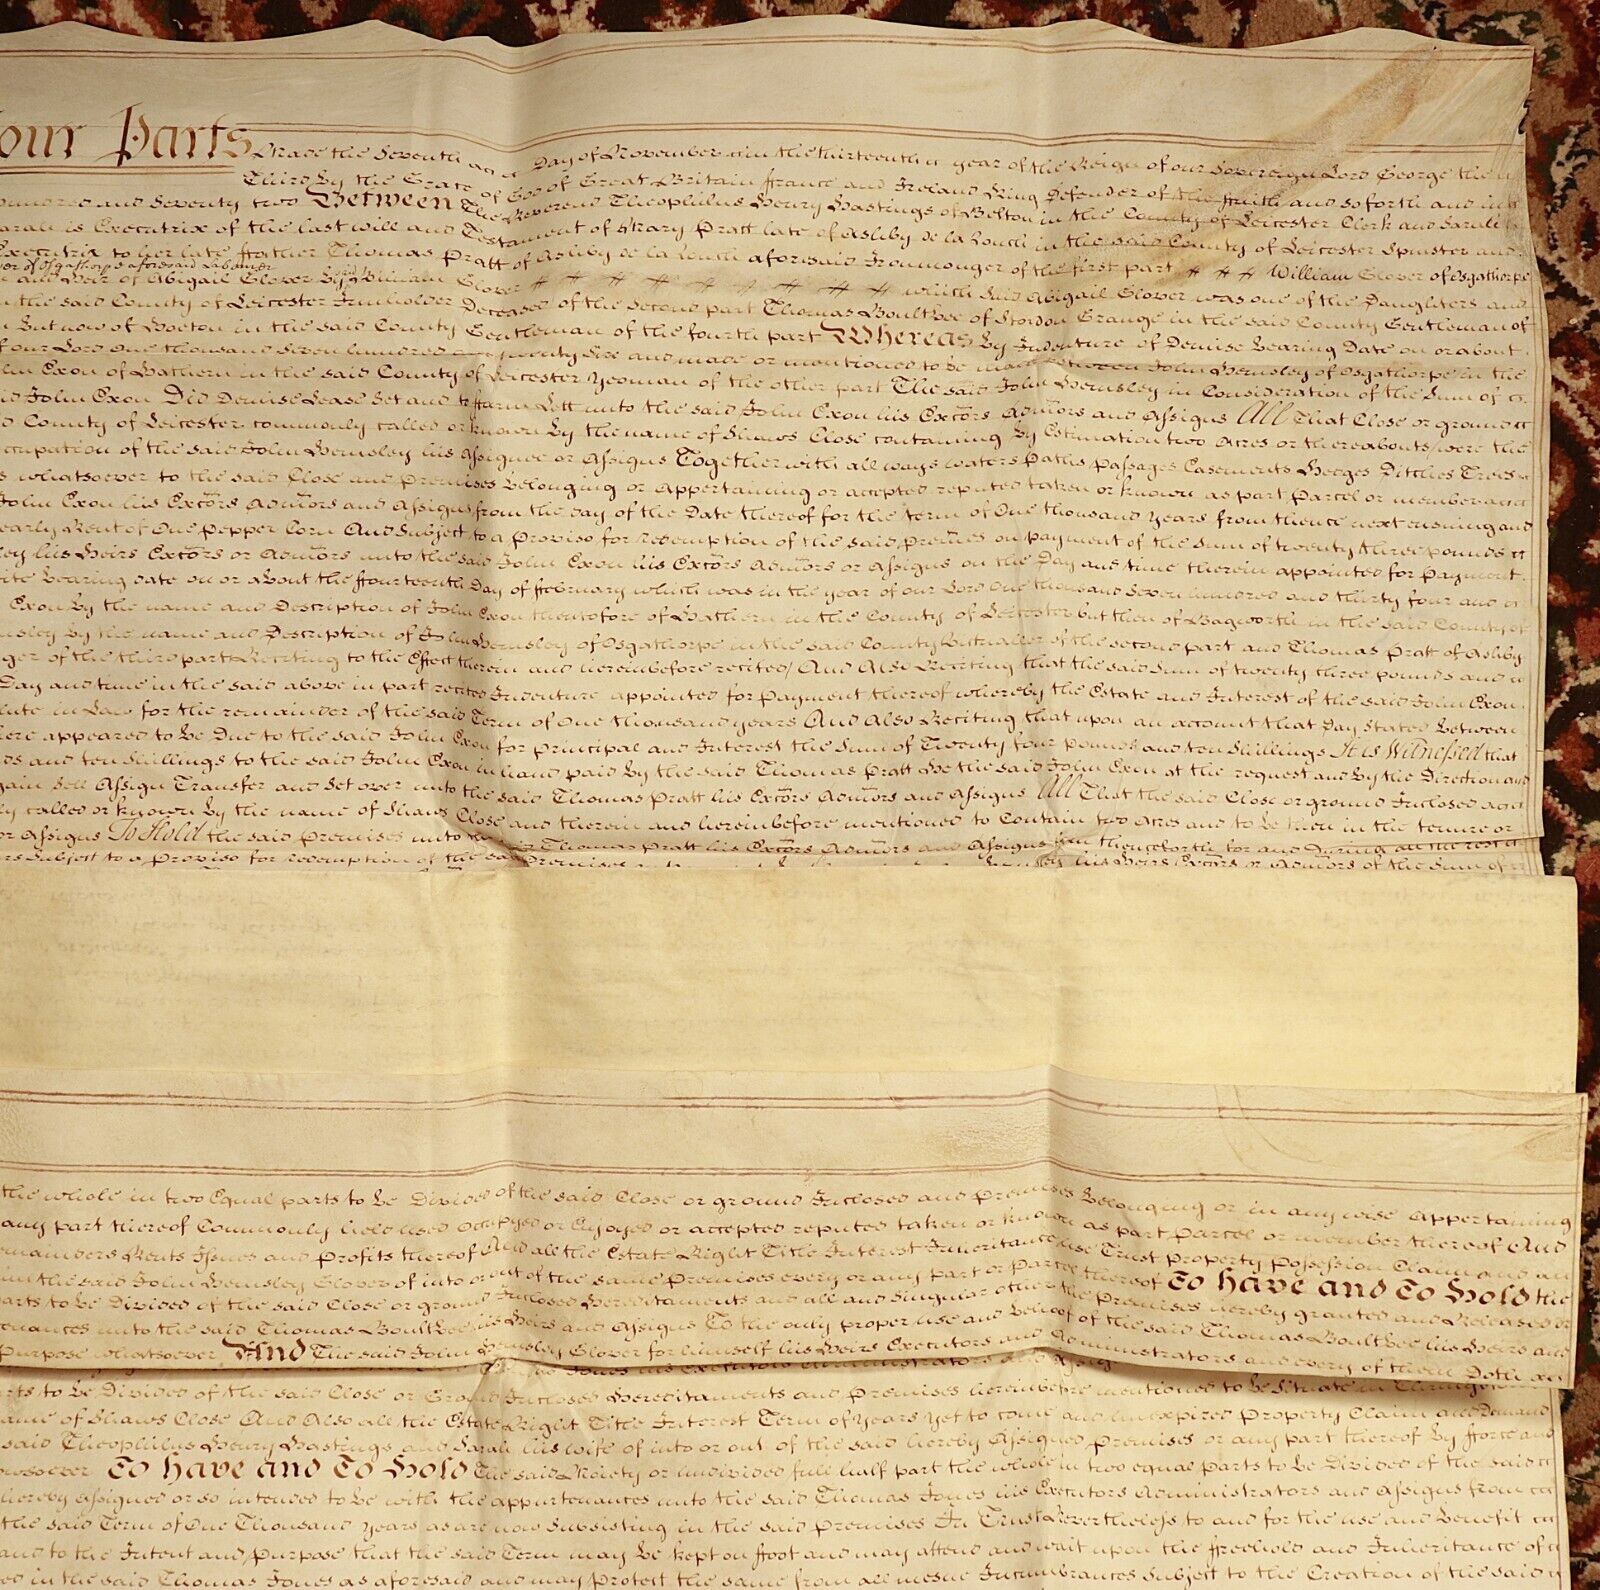 our Parts Made the Seventh Day of November in the thirteenth year of the Reign of our Sovereign Lord George the
Third By the Grace of God of Great Britain ffrance and Ireland King Defender of the ffaith and so forth and in
and Seventy two Between The Reverend Theophilus Henry Hastings of Belton in the County of Leicester Clerk and Sarah
Sarah is Executrix of the last will and Testament of Mary Pratt late of Ashby de la Zouch in the said County of Leicester Spinster and
Executrix to her late ffather Thomas Pratt of Ashby de la Zouch aforesaid Ironmonger of the first part William Glover of Osgathorpe
of Osgathorpe aforesaid Labourer
and Heir of Abigail Glover By William Glover which said Abigail Glover was one of the Daughters and
the said County of Leicester Innholder Deceased of the Second part Thomas Boultbee of Stordon Grange in the said County Gentleman of
But now of in the said County Gentleman of the fourth part Whereas By Indenture of Demise Bearing Date on or about
our Lord One thousand Seven hundred and twenty Six and made or mentioned to be made Between John Hemsley of Osgathorpe in the
Exon of Hathern in the said County of Leicester Yeoman of the other part The said John Hemsley in Consideration of the Sum of
John Exon Did Demise Lease Set and to ffarm Lett unto the said John Exon his Exctors Admtors and Assigns All That Close or ground
County of Leicester commonly called or known By the name of Shaws Close containing By Estimation two Acres or thereabouts were the
occupation of the said John Hemsley his Assignee or Assigns Together with all ways waters Paths passages Easements Hedges Ditches Trees
whatsoever to the said Close and Premises Belonging or Appertaining or accepted reputed taken or known as part Parcel or member
John Exon his Exctors Admtors and Assigns from the day of the Date thereof for the term of One thousand Years from thence next ensuing and
yearly Rent of One Pepper Corn And Subject to a Proviso for redemption of the said Premes on payment of the Sum of twenty three pounds
his Heirs Exctors or Admtors unto the said John Exon his Exctors Admtors or Assigns on the Day and time therein appointed for Payment
Bearing date on or about the ffourteenth Day of ffebruary which was in the year of our Lord One thousand Seven hundred and thirty four and
Exon By the name and Description of John Exon theretofore of Hathern in the County of Leicester but then of Bagworth in the said County of
By the name and Description of John Hemsley of Osgathorpe in the said County Victualler of the second part and Thomas Pratt of Ashby
of the third part Reciting to the Effect therein and hereinbefore recited And Also Reciting that the said Sum of twenty three pounds and
Day and time in the said above in part recited Indenture appointed for Payment thereof whereby the Estate and Interest of the said John Exon
in Law for the remainder of the said Term of One thousand years And Also Reciting that upon an account that Day Stated Between
there appeared to be Due to the said John Exon for Principal and Interest the Sum of Twenty four pounds and ten Shillings It is Witnessed that
and ten Shillings to the said John Exon in hand paid By the said Thomas Pratt He the said John Exon at the request and By the Direction and
Sell Assign Transfer and Set over unto the said Thomas Pratt his Exctors Admtors and Assigns All That the said Close or ground Inclosed
called or known By the name of Shaws Close and therein and hereinbefore mentioned to Contain two Acres and to be then in the tenure or
or Assigns To Hold the said Premises unto the Thomas Pratt his Exctors Admtors and Assigns from thenceforth for and During all the rest
Subject to a Proviso for redemption of the said Premises his Heirs Exctors or Admtors of the Sum of
the whole in two Equal parts to be Divided of the said Close or ground Inclosed and Premises Belonging or in any wise Appertaining
any part thereof Commonly held used Occupyed or Enjoyed or accepted reputed taken or known as part Parcel or member thereof And
Rents Issues and Profits thereof And all the Estate Right Title Interest Inheritance use Trust Property Possession Claim and
in the said John Hemsley Glover of into or out of the same Premises every or any part or Parcel thereof To have and To Hold the
parts to be Divided of the said Close or ground Inclosed Hereditaments and all and Singular other the Premises hereby granted and Released
unto the said Thomas Boultbee his Heirs and Assigns To the only proper use and Behoof of the said Thomas Boultbee his Heirs and
Purpose whatsoever And The said John Hemsley Glover for himself his Heirs Executors and Administrators and every of them Doth
Jones his Executors Administrators and Assigns
to be Divided of the said Close or Ground Inclosed Hereditaments and Premises hereinbefore mentioned to be Situate in
name of Shaws Close And Also all the Estate Right Title Interest Term of Years Yet to come and unexpired Property Claim and Demand
said Theophilus Henry Hastings and Sarah his wife of into or out of the said hereby Assigned Premises or any part thereof By fforce and
To have and To Hold The said Moiety or undivided full half part the whole in two equal parts to be Divided of the said
hereby Assigned or so intended to be with the appurtenances unto the said Thomas Jones his Executors Administrators and Assigns from
the said Term of One Thousand years as are now Subsisting in the said Premises In Trust Nevertheless to and for the use and Benefit
and to the Intent and Purpose that the said Term may be kept on ffoot and may attend and wait upon the ffreehold and Inheritance of
in the said Thomas Jones as aforesaid and may Protect the same from all mesne Incumbrances Subject to the Creation of the said